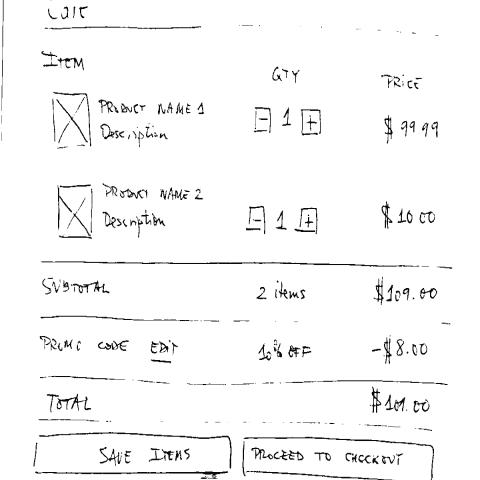 Cart
ITEM QTY PRICE
PRODUCT NAME 1
Description
- 1 +
$ 99 99
PRODUCT NAME 2
Description
- 1 +
$10 00
SUBTOTAL 2 items $109.00
PROMO CODE EDIT 10% OFF -$8.00
TOTAL $101.00
SAVE ITEMS PROCEED TO CHECKOUT